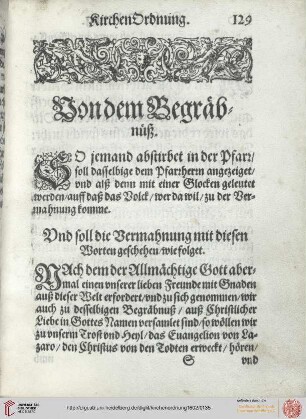 KirchenOrdnung. 129
Von dem Begräb-
nüß.
SO jemand abstirbet in der Pfarr/
soll dasselbige dem Pfarrherrn angezeiget/
und alß denn mit einer Glocken geleutet
werden/ auff daß das Volck/ wer da wil/ zu der Ver-
mahnung komme.
Vnd soll die Vermahnung mit diesen
Worten geschehen/ wie folget.
NAch dem der Allmächtige Gott aber-
mal einen unserer lieben Freunde mit Gnaden
auß dieser Welt erfordert/ und zu sich genommen/ wir
auch zu desselbigen Begräbnuß/ auß Christlicher
Liebe in Gottes Namen versamlet sind/ so wöllen wir
zu unserm Trost und Heyl/ das Euangelion von La-
zaro/ den Christus von den Todten erweckt/ hören/
S und